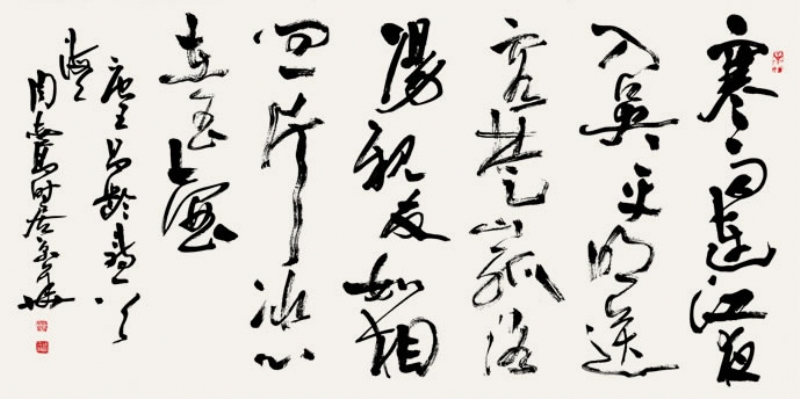 寒雨連江夜
入吳平明送
客楚山孤洛
陽親友如相
問一片冰心
在玉壺
唐王昌齡詩一首
海上
周志高时居